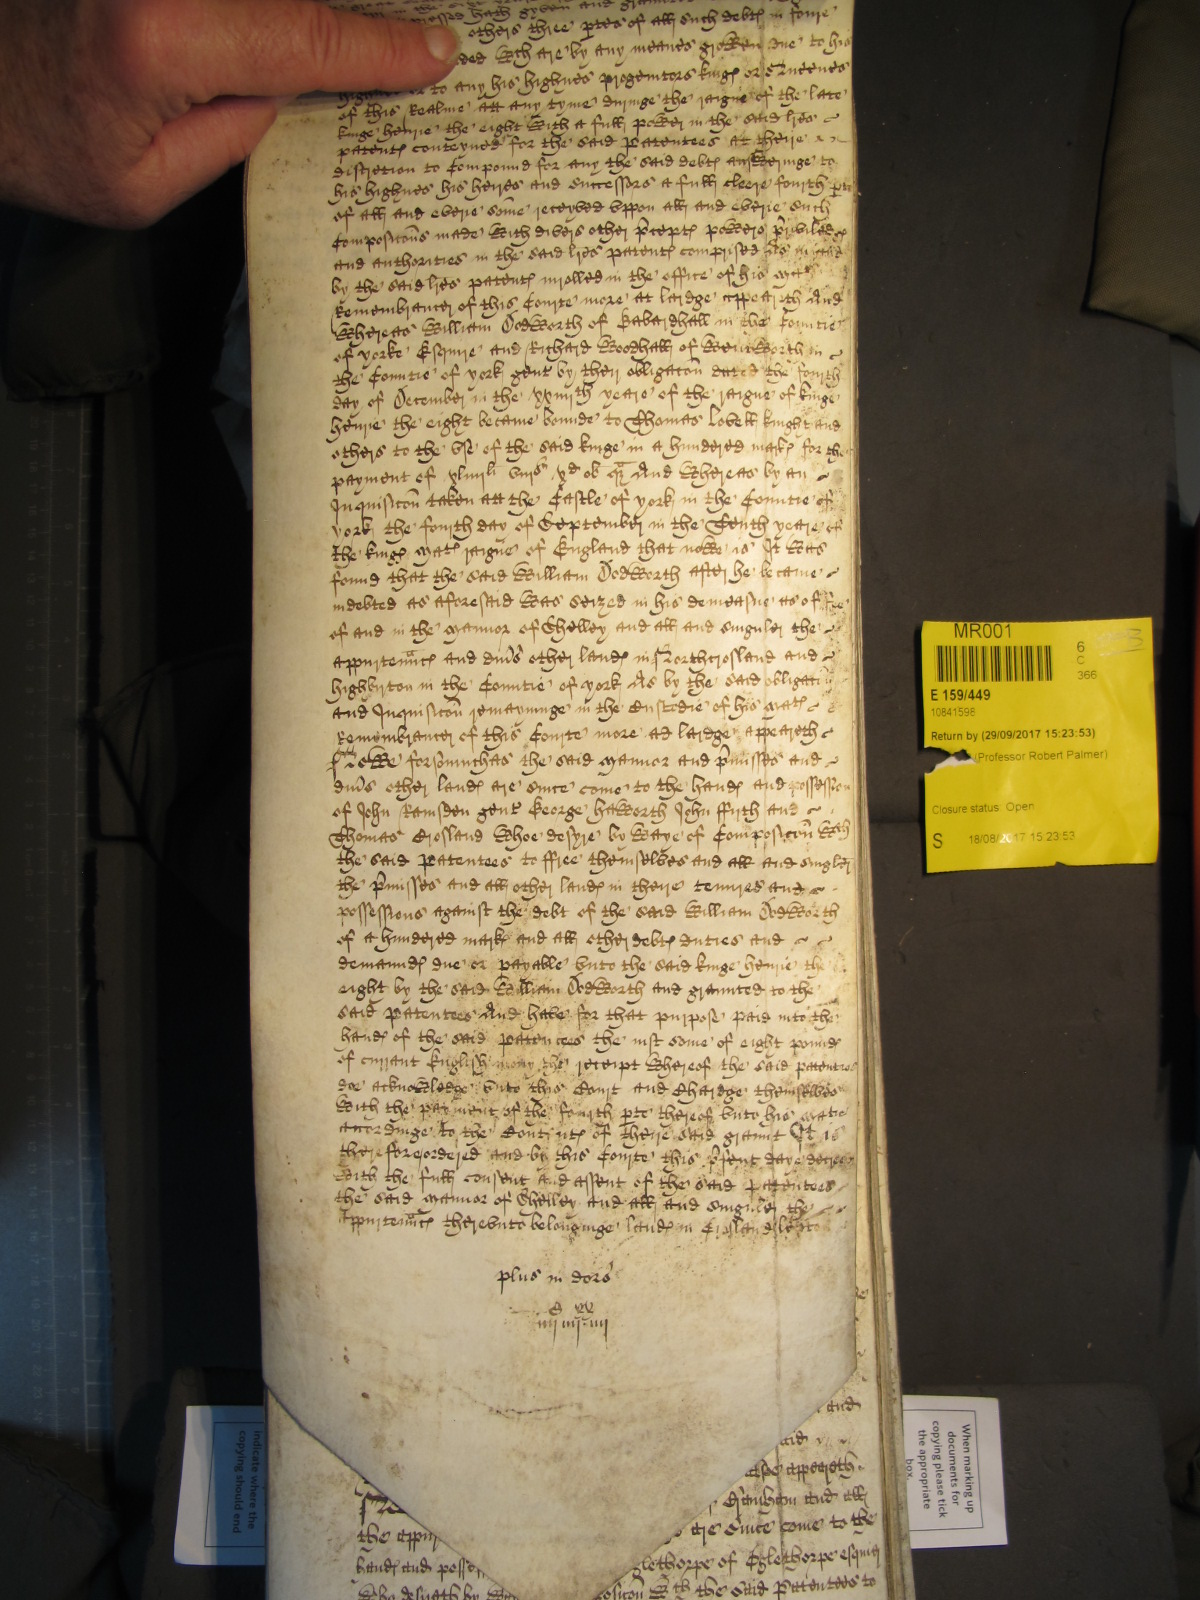 hath gyven and graunted
others three ptes of all such debte in
wch are by any meanes growen due to his
or to any his highnes progenitors kinge or Queenes
of this Realme att any tyme duringe the raigne of the late
kinge henrie the eight with a full power in the said lres
patente conteyned for the said patentees at there
discretion to Compound for any the said debte answeringe to
his highnes his heires and successors a full cleere fourth pte
of all and everie some receyved uppon all and everie such
Composicons made with divers other precepte powers priviledge
and authorities in the said lres patente comprised As
by the said lres patente inrolled in the office of his matie
Remembrancer of this Courte more at lardge appeareth And
Whereas William Dodworth of in the Countie
of yorke Esquire and Richard Woodhall of Wentworth in
the Countie of york gent by their obligacon dated the fourth
day of December in the yeare of the raigne of kinge
henrie the eight became bounde to Thomas Lovell knight and
others to the use of the said kinge in a hundered marke for the
payment of xd ob And Whereas by an
Inquisicon taken att the Castle of york in the Countie of
york the fourth day of September in the Tenth yeare of
the kinge mate raigne of England that nowe is It was
found that the said William Dodworth after he became
indebted as aforesaid was seized in his demeasne as of fee
of and in the mannor of Shelley and all and singuler the
appurtenance and divers other lande in Northcrosland and
highburton in the Countie of york As by the said obligacon
and Inquisicon remayninge in the Custodie of his mate
Remembrancer of this Courte more at lardge appeareth
Nowe forsomuchas the said mannor and premisses and
divers other lande are since come to the hande and possession
of John Ramsden gent George haworth John ffyrth and
Thomas Crosland whoe desyre by waye of Composicon wth
the said patentees to ffree themselves and all and singler
the premisses and all other lande in there tenures and
possessions against the debt of the said William Dodworth
of a hundered marke and all other debte duties and
demaunde due or payable unto the said kinge henrie the
eight by the said William Dodworth and graunted to the
said patentees And have for that purpose paid into the
hande of the said patentees the just some of eight pounde
of currant English mony the receipt whereof the said patentees
doe acknowledge unto this Court and Chardge themselves
with the payment of the fourth pte thereof unto his matie
accordinge to the Contente of there said graunt It is
therefore ordered and by this Courte this present daye decreed
with the full consent and assent of the said patentees
the said mannor of Shelley and all and singuler the
appurtenance thereunto belonginge lande in Crosland
plus in dors
and
said
appeareth
and all
the are since come to the
hande and Eglethorpe esquire
the said patentees to
MR001
6
C
366
E 159/449
10841598
Return by (29/09/2017 15:23:53)
(Professor Robert Palmer)
Closure status: Open
S 18/08/2017 15:23:53
indicate where the
copying should end
When marking up
documents for
copying please tick
the appropriate
box.